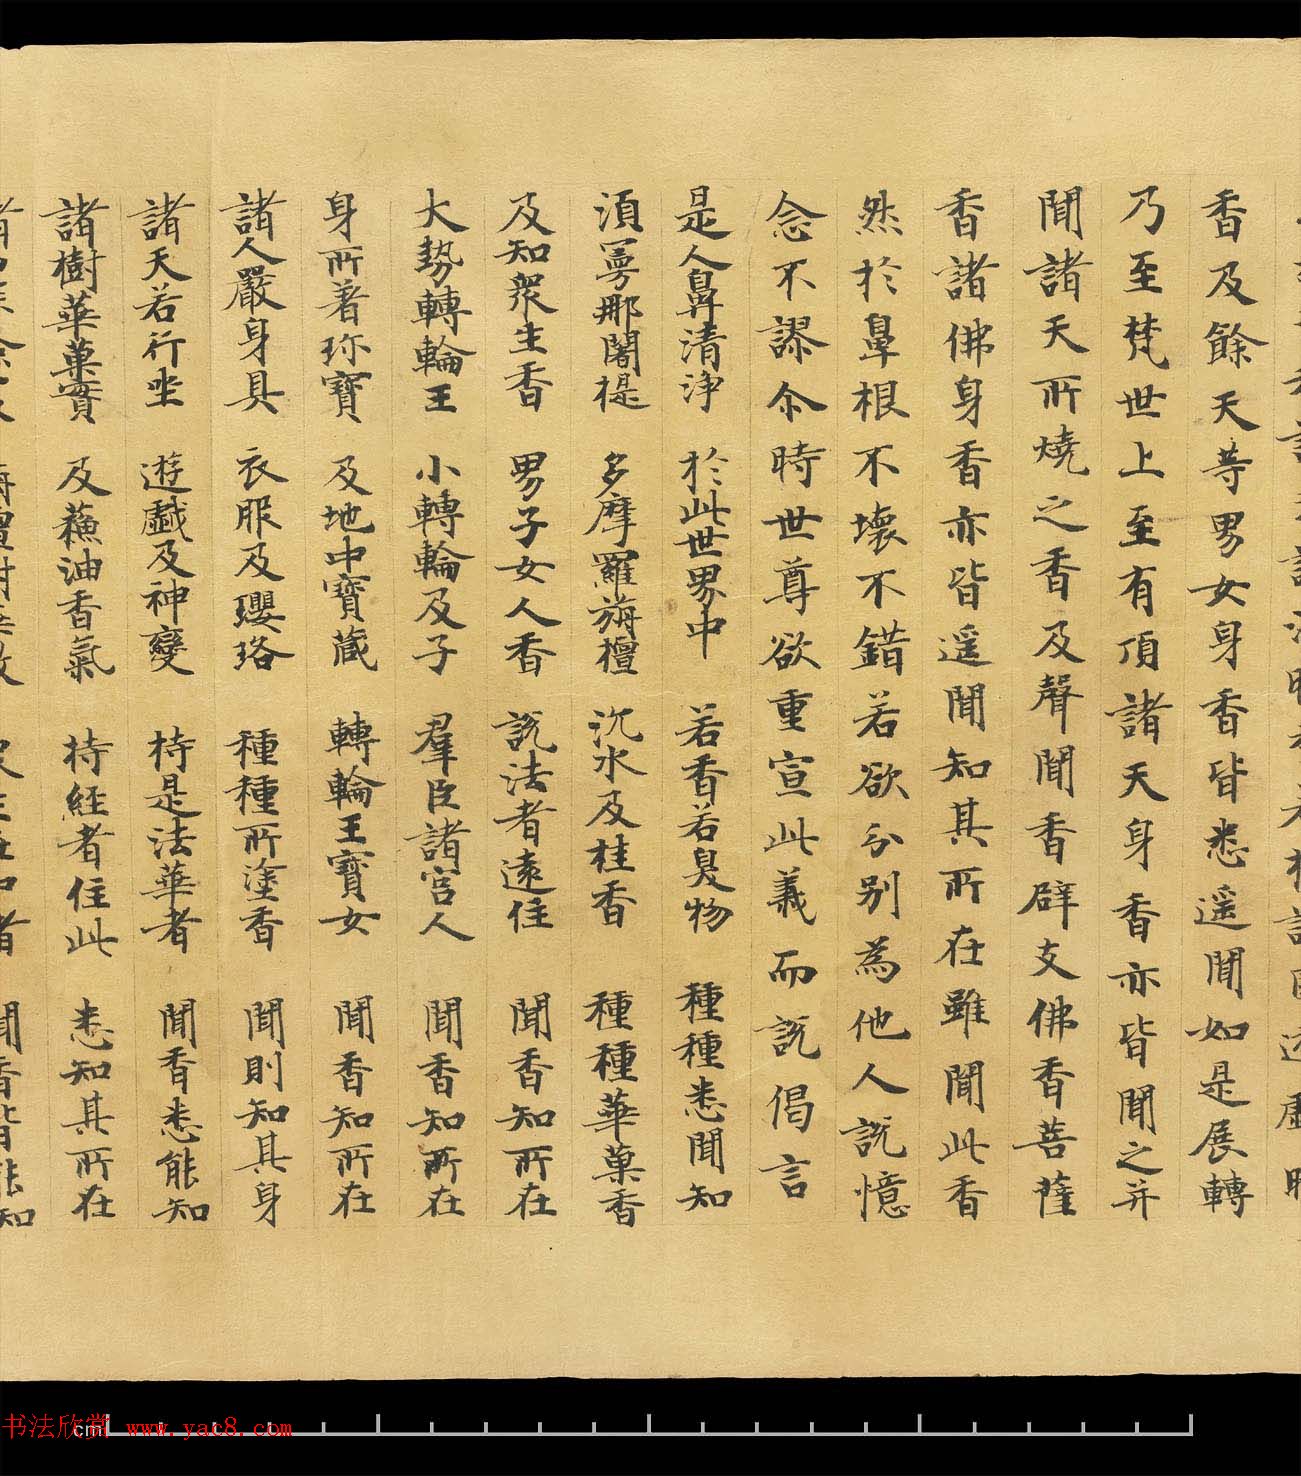 香及餘天等男女身香皆悉遥聞如是展轉
乃至梵世上至有頂諸天身香亦皆聞之并
聞諸天所燒之香及聲聞香辟支佛香菩薩
香諸佛身香亦皆遥聞知其所在雖聞此香
然於鼻根不壞不錯若欲分別為他人説憶
念不謬尒時世尊欲重宣此義而説偈言
是人鼻清淨 於此世界中 若香若臭物 種種悉聞知
湏曼那闍提 多摩羅旃檀 沉水及桂香 種種華菓香
及知衆生香 男子女人香 説法者遠住 聞香知所在
大勢轉輪王 小轉輪及子 羣臣諸宫人 聞香知所在
身所著珎寶 及地中寶藏 轉輪王寶女 聞香知所在
諸人嚴身具 衣服及瓔珞 種種所塗香 聞則知其身
諸天若行坐 遊戲及神變 持是法華者 聞香悉能知
諸樹華菓實 及蘓油香氣 持經者住此 悉知其所在
聞香皆能知
书法欣赏 www.yac8.com
cm